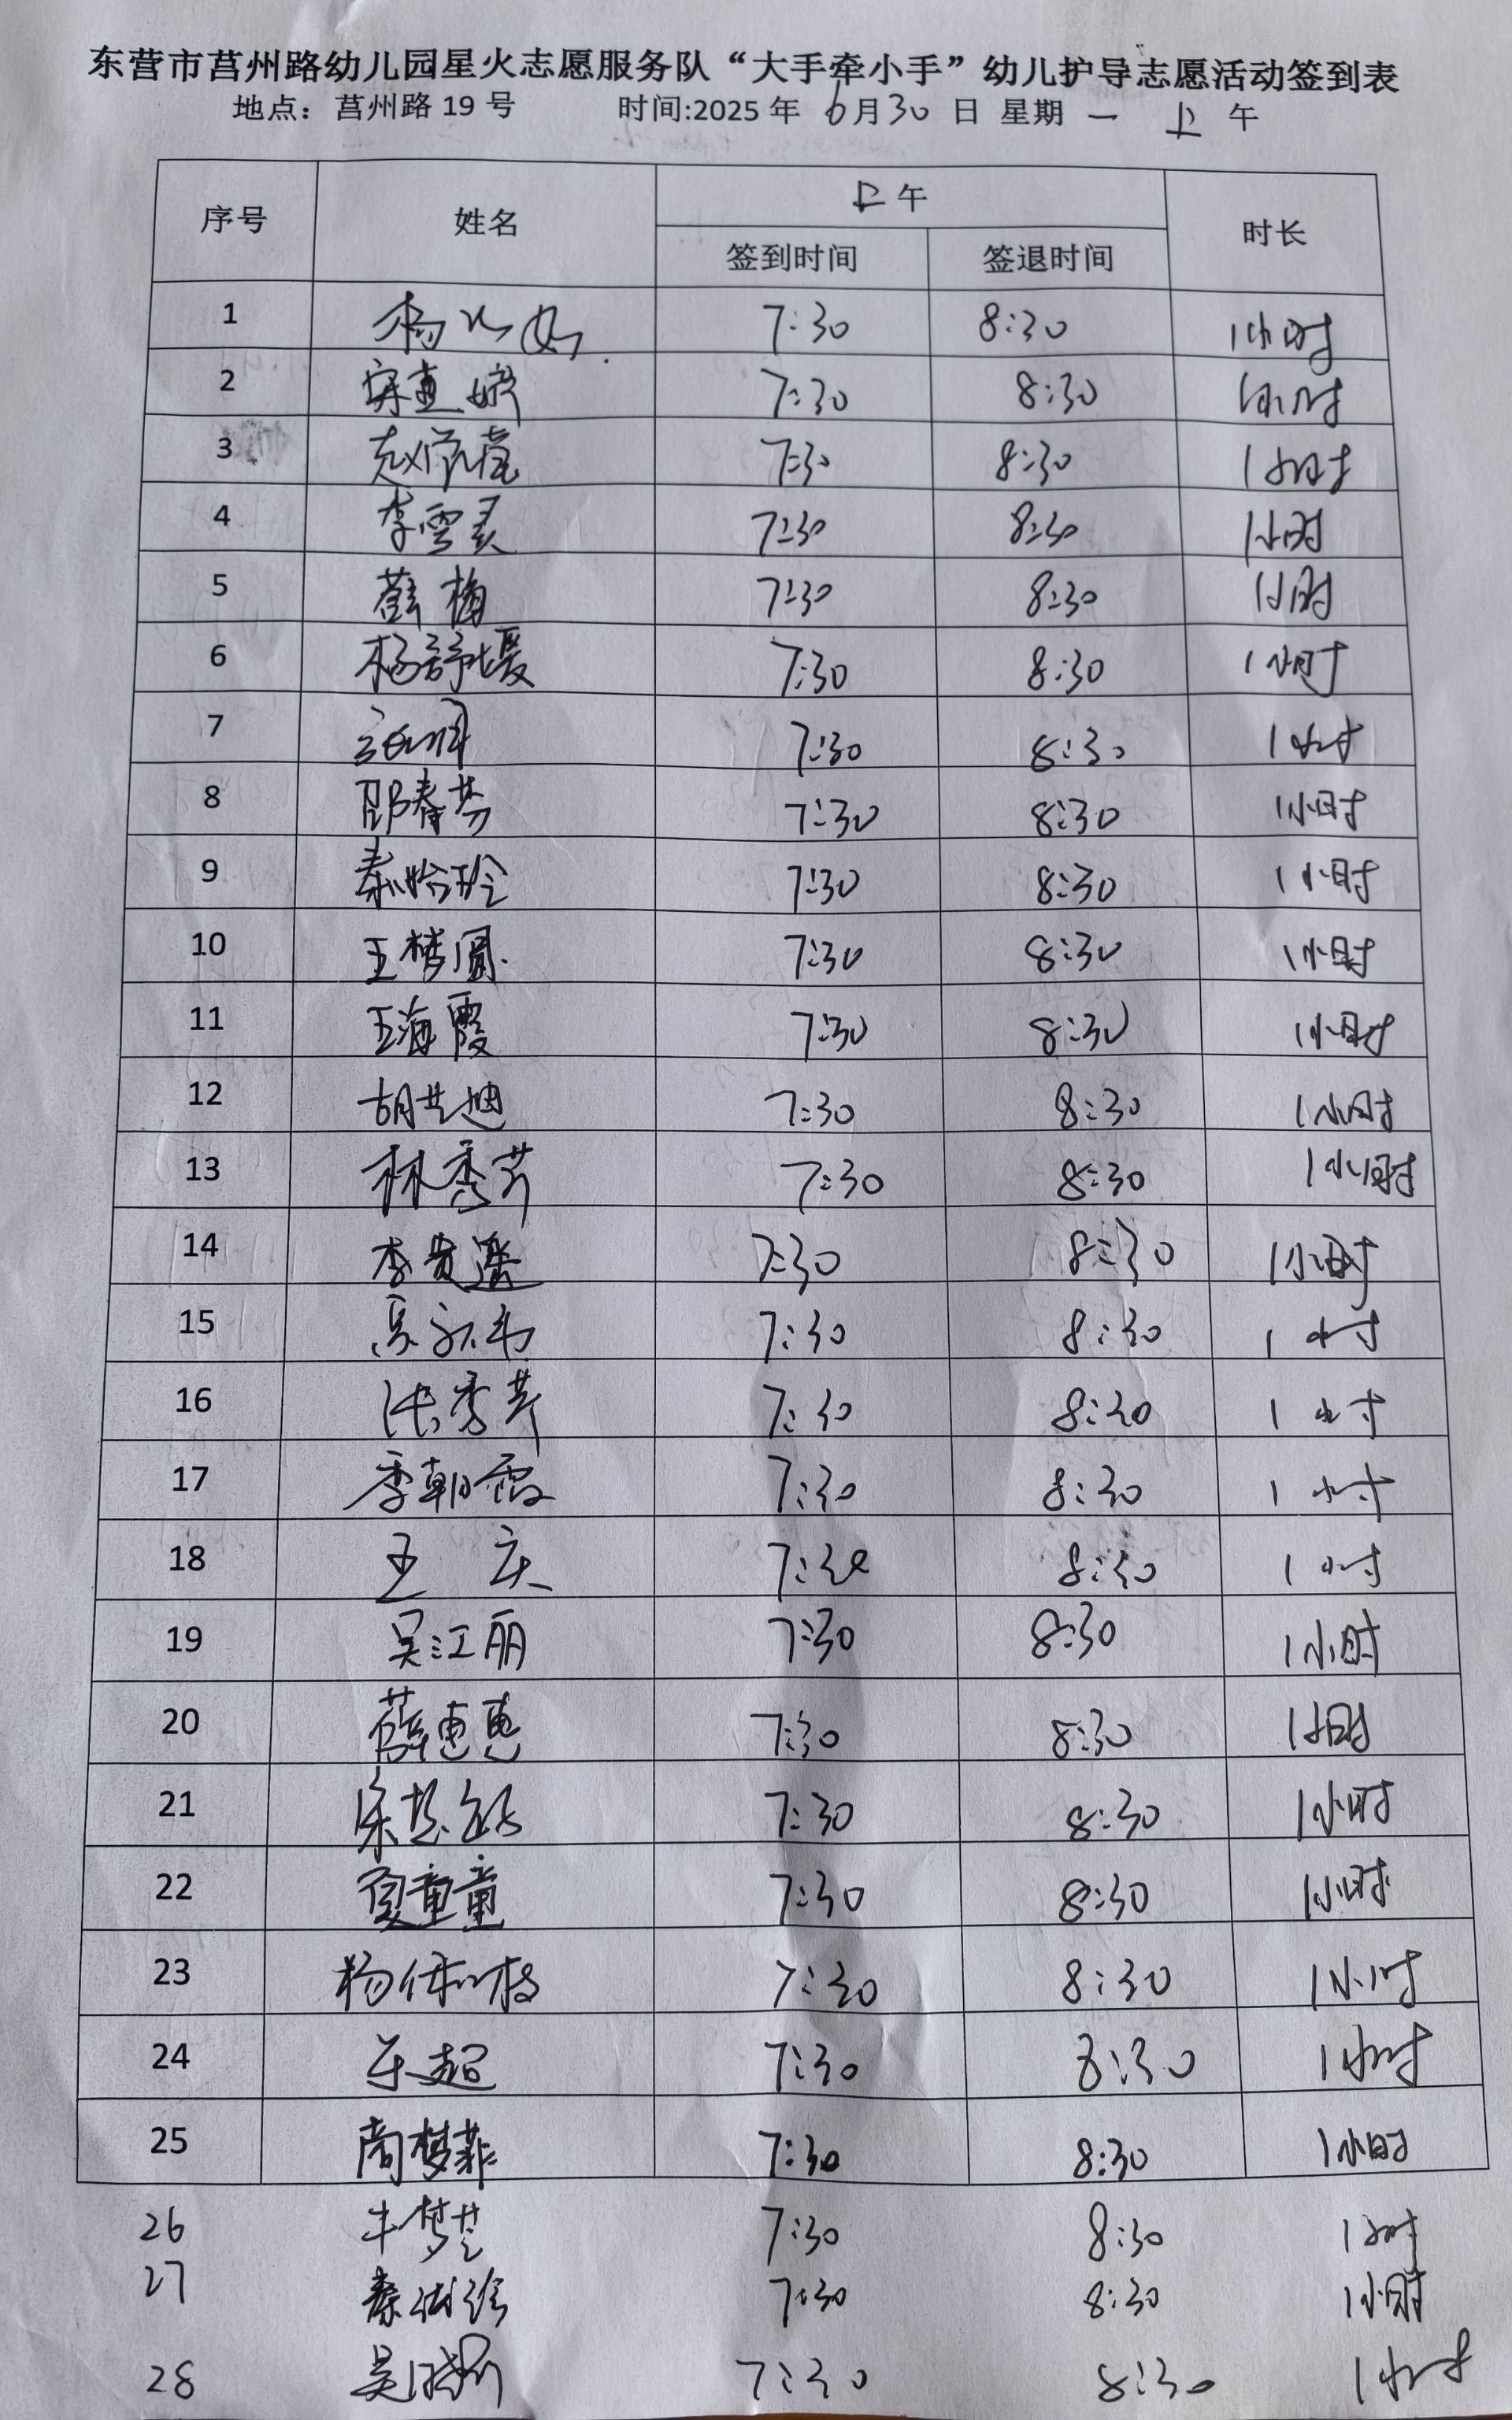 东营市莒州路幼儿园星火志愿服务队“大手牵小手”幼儿护导志愿活动签到表
地点：莒州路 19 号 时间:2025 年 6月30 日 星期 一 上 午
序号 姓名 上午 时长
签到时间 签退时间
1 杨 7:30 8:30 1小时
2 7:30 8:30 1小时
3 赵 7:30 8:30 1小时
4 李雪灵 7:30 8:30 1小时
5 薛梅 7:30 8:30 1小时
6 杨舒媛 7:30 8:30 1小时
7 7:30 8:30 1小时
8 邵春芳 7:30 8:30 1小时
9 秦怡玲 7:30 8:30 1小时
10 王梦圆 7:30 8:30 1小时
11 王海霞 7:30 8:30 1小时
12 胡兰迪 7:30 8:30 1小时
13 林秀芹 7:30 8:30 1小时
14 李 7:30 8:30 1小时
15 7:30 8:30 1小时
16 张秀芹 7:30 8:30 1小时
17 季朝霞 7:30 8:30 1小时
18 王庆 7:30 8:30 1小时
19 吴江丽 7:30 8:30 1小时
20 薛惠惠 7:30 8:30 1小时
21 7:30 8:30 1小时
22 夏童童 7:30 8:30 1小时
23 杨 枝 7:30 8:30 1小时
24 超 7:30 8:30 1小时
25 尚梦菲 7:30 8:30 1小时
26 牛梦芝 7:30 8:30 1小时
27 秦 7:30 8:30 1小时
28 吴 7:30 8:30 1小时